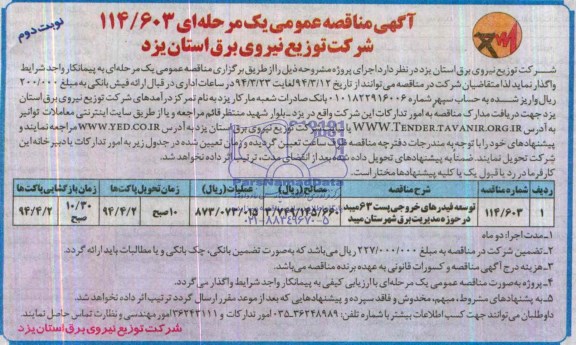 آگهی مناقصه عمومی یک مرحله‌ای ۱۱۴/۶۰۳
شرکت توزیع نیروی برق استان یزد
نوبت دوم
شرکت توزیع نیروی برق استان یزد در نظر دارد اجرای پروژه مشروحه ذیل را از طریق برگزاری مناقصه عمومی یک مرحله‌ای به پیمانکار واجد شرایط
واگذار نماید لذا متقاضیان شرکت در مناقصه می‌توانند از تاریخ ۹۴/۳/۱۳ لغایت ۹۴/۳/۲۳ در ساعات اداری در قبال ارائه فیش بانکی به مبلغ ۲۰۰/۰۰۰
ریال واریز شده به حساب سپهر شماره ۰۱۰۱۸۲۳۹۱۶۰۰۶ بانک صادرات شعبه مارکار یزد به نام تمرکز درآمدهای شرکت توزیع نیروی برق استان
یزد جهت دریافت مدارک مناقصه به امور تدارکات این شرکت واقع در یزد، بلوار شهید منتظر قائم مراجعه و یا از طریق سایت اینترنتی معاملات توانیر
به آدرس WWW.TENDER.TAVANIR.ORG.IR یا شرکت توزیع نیروی برق استان یزد به آدرس WWW.YED.CO.IR مراجعه نمایند و
پیشنهادهای خود را با توجه به مندرجات دفترچه مناقصه تا ساعت تعیین گردیده و زمان تعیین شده در جدول زیر به امور تدارکات یا دبیرخانه این
شرکت تحویل نمایند. ضمناً به پیشنهادهای تحویل داده شده بعد از انقضای مدت، ترتیب اثر داده نخواهد شد.
کارفرما در رد یا قبول یک یا کلیه پیشنهادها مختار است.
ردیف شماره مناقصه شرح مناقصه مصالح (ریال) عملیات (ریال) زمان تحویل پاکت‌ها زمان بازگشایی پاکت‌ها
۱ ۱۱۴/۶۰۳ توسعه فیدرهای خروجی پست ۶۳ میبد در حوزه مدیریت برق شهرستان میبد ۳/۷۴۹/۱۴۵/۶۶۰ ۸۷۳/۰۷۳/۰۱۵ ۱۰ صبح ۹۴/۴/۲ ۱۰/۳۰ صبح ۹۴/۴/۲
۱- مدت اجرا: دو ماه
۲- تضمین شرکت در مناقصه به مبلغ ۲۲۷/۰۰۰/۰۰۰ ریال می‌باشد که به صورت تضمین بانکی، چک بانکی و یا مطالبات باید ارائه گردد.
۳- هزینه درج آگهی مناقصه و کسورات قانونی به عهده برنده مناقصه می‌باشد.
۴- پروژه به صورت مناقصه عمومی یک مرحله‌ای با ارزیابی کیفی به پیمانکار واجد شرایط واگذار می‌گردد.
۵- به پیشنهادهای مشروط، مبهم، مخدوش و فاقد سپرده و پیشنهادهایی که بعد از موعد مقرر ارسال گردد ترتیب اثر داده نخواهد شد.
داوطلبان می‌توانند جهت کسب اطلاعات بیشتر با شماره تلفن: ۳۶۲۴۸۹۸۹-۰۳۵ امور تدارکات و ۳۶۲۴۳۱۱۱ امور مهندسی و نظارت تماس حاصل نمایند.
شرکت توزیع نیروی برق استان یزد